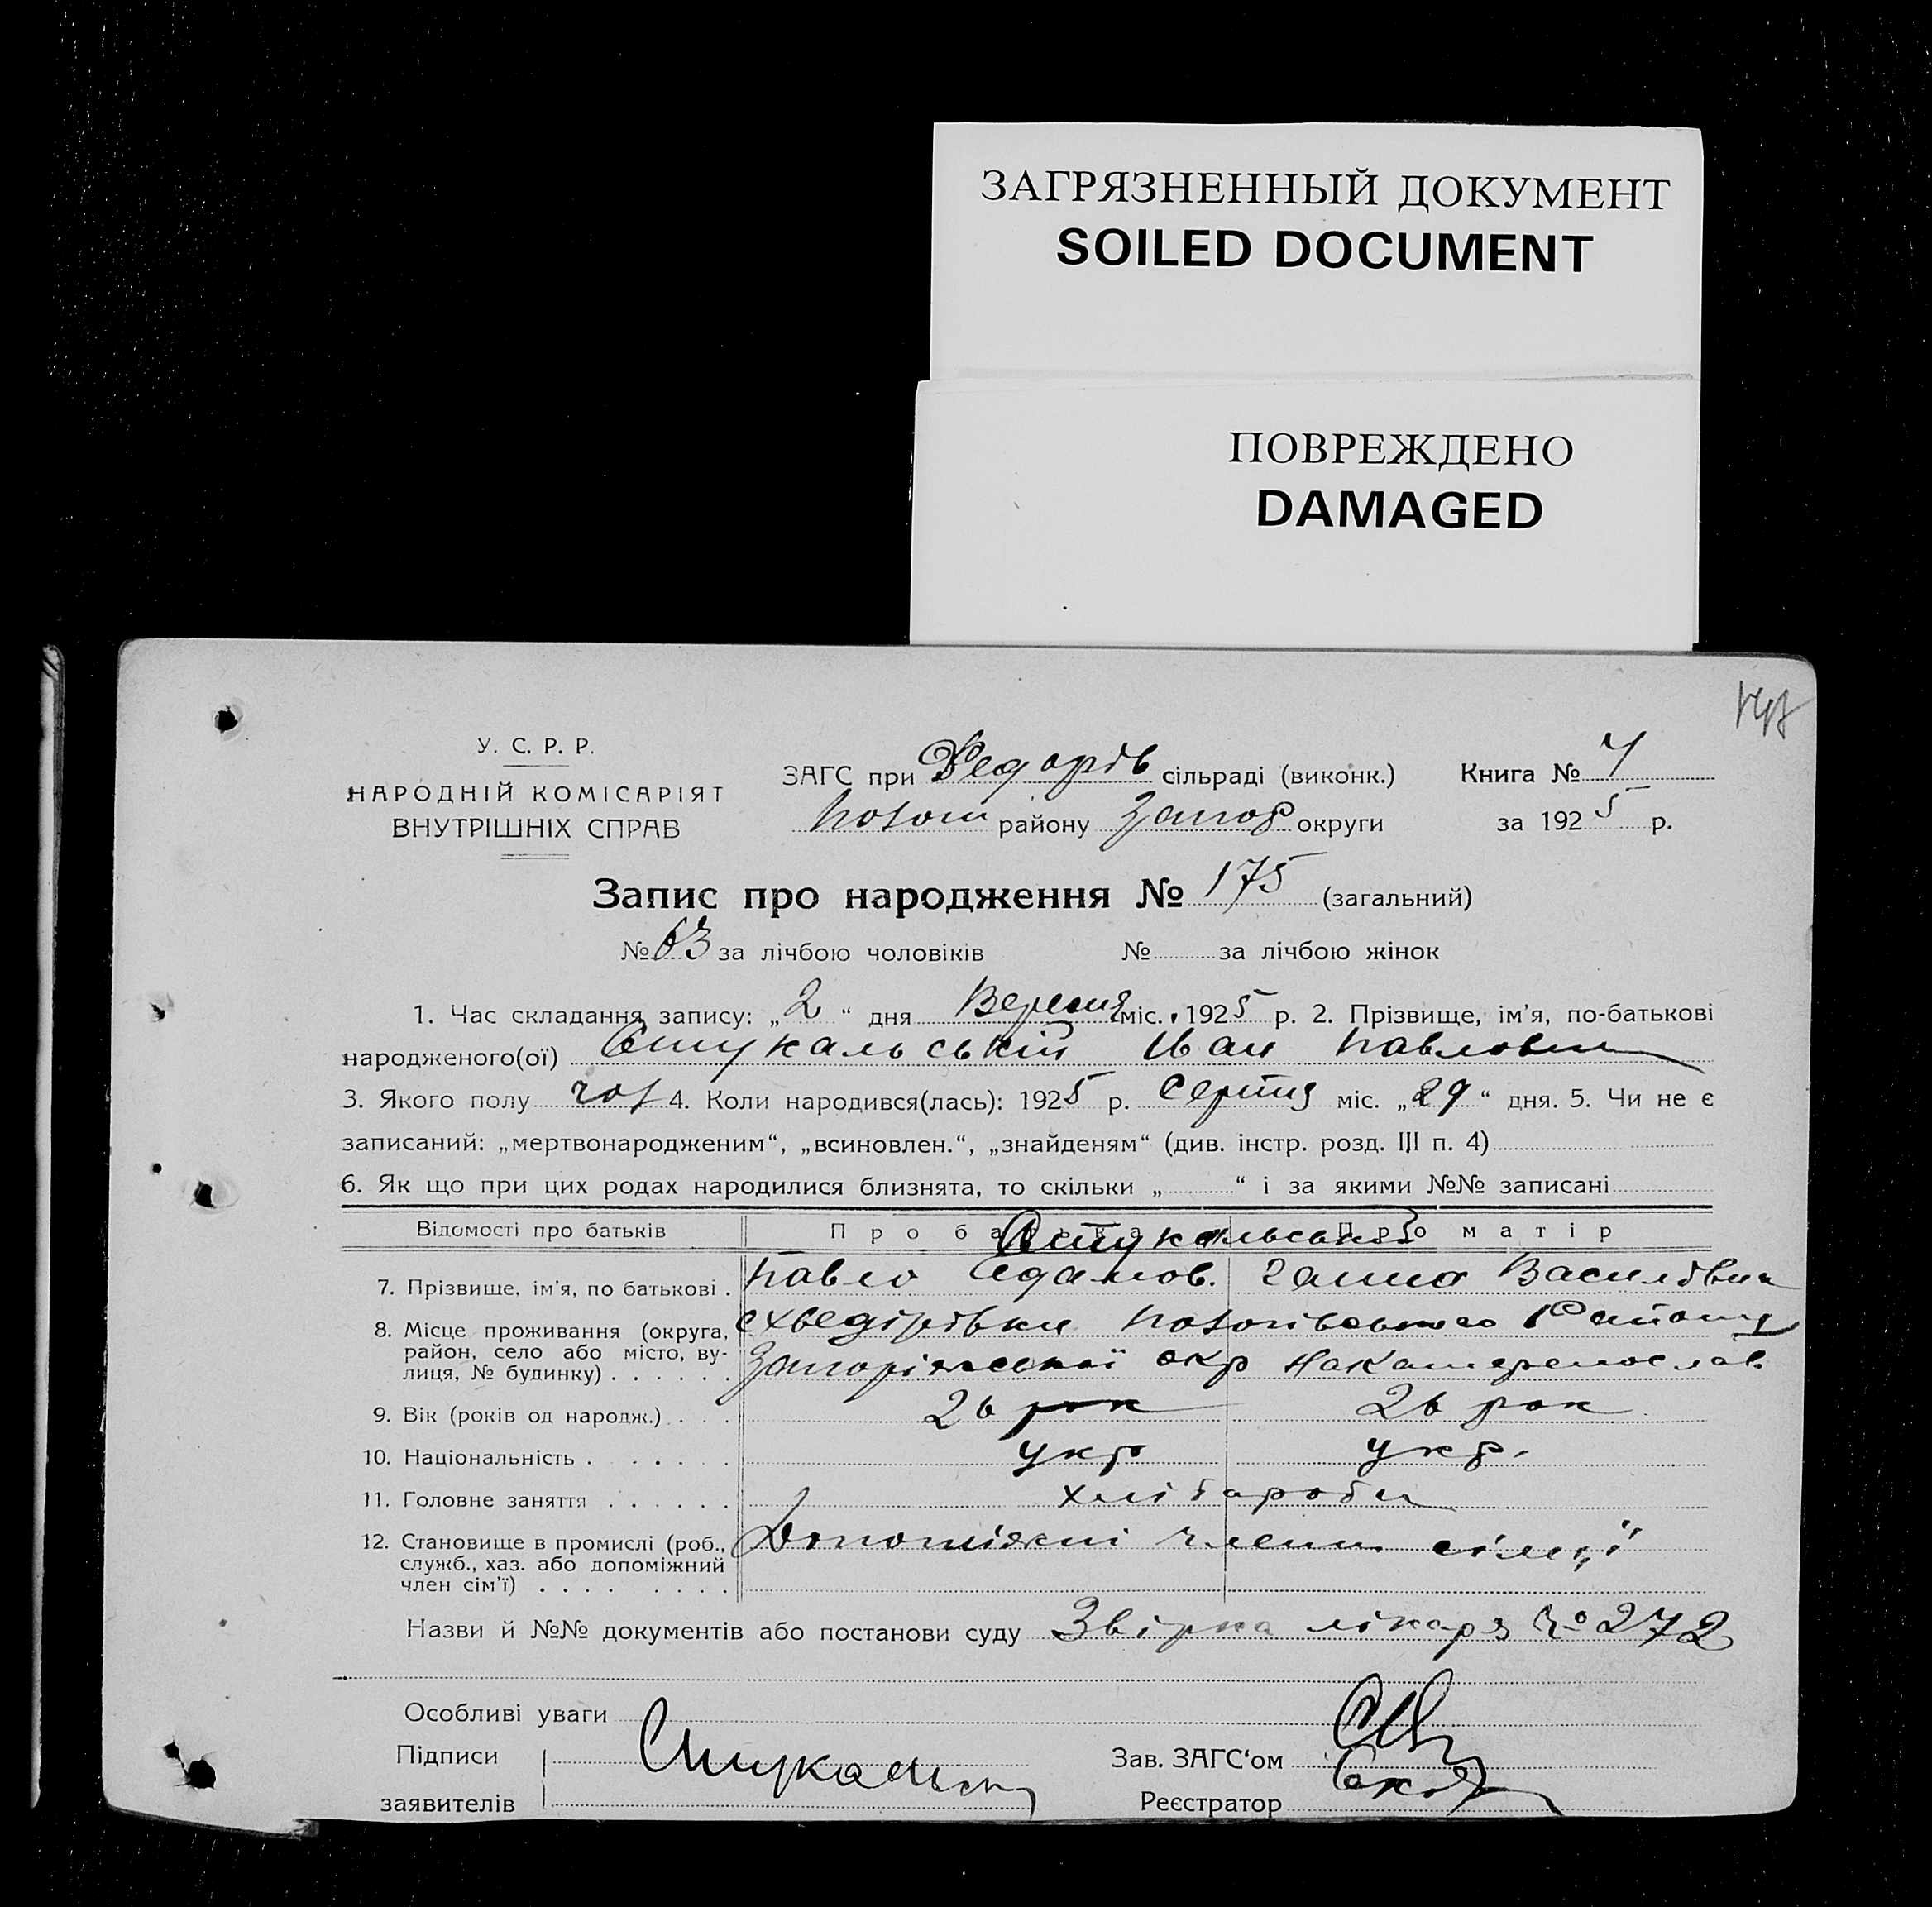 ЗАГРЯЗНЕННЫЙ ДОКУМЕНТ
SOILED DOCUMENT
ПОВРЕЖДЕНО
DAMAGED
У. С. Р. Р.
НАРОДНІЙ КОМІСАРІЯТ
ВНУТРІШНІХ СПРАВ
ЗАГС при Федорів сільраді (виконк.) Книга №
району Запор округи за 1925 р.
Запис про народження № 175 (загальний)
№ 63 за лічбою чоловіків № за лічбою жінок
1. Час складання запису: „2“ дня Вересня міс. 1925 р. 2. Прізвище, ім’я, по-батькові
народженого(ої) Стукальській Іван Павлович
3. Якого полу чол 4. Коли народився(лась): 1925 р. Серпня міс. „29“ дня. 5. Чи не є
записаний: „мертвонародженим“, „всиновлен.“, „знайденям“ (див. інстр. розд. III п. 4)
6. Як що при цих родах народилися близнята, то скільки „ “ і за якими №№ записані
Відомості про батьків Про батька Про матір
Стукальські
7. Прізвище, ім’я, по батькові . Павло Адамов. Ганна Василівна
8. Місце проживання (округа, район, село або місто, вулиця, № будинку) . . . . . .
Району
Запоріжської окр
9. Вік (років од народж.) . . . 26 рок 26 рок
10. Національність . . . . . . укр укр.
11. Головне заняття . . . . . . хлібароби
12. Становище в промислі (роб., Допоміжні члени сімї
служб., хаз. або допоміжний
член сім’ї) . . . . . . . .
Назви й №№ документів або постанови суду лікаря № 272
Особливі уваги
Підписи
заявителів
Зав. ЗАГС‘ом
Реєстратор